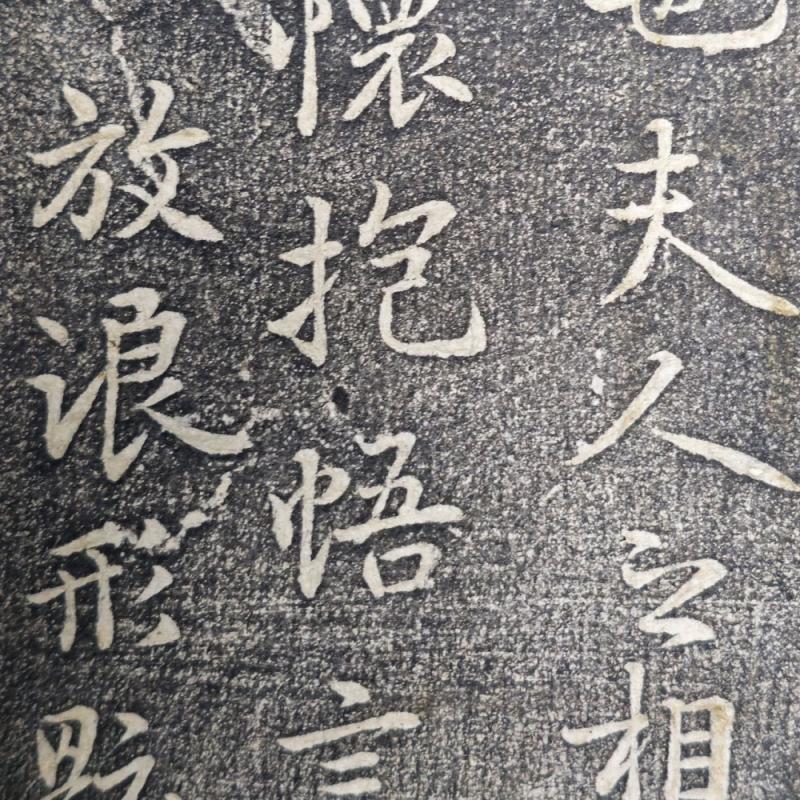 也夫人之相
懷抱悟言
放浪形骸